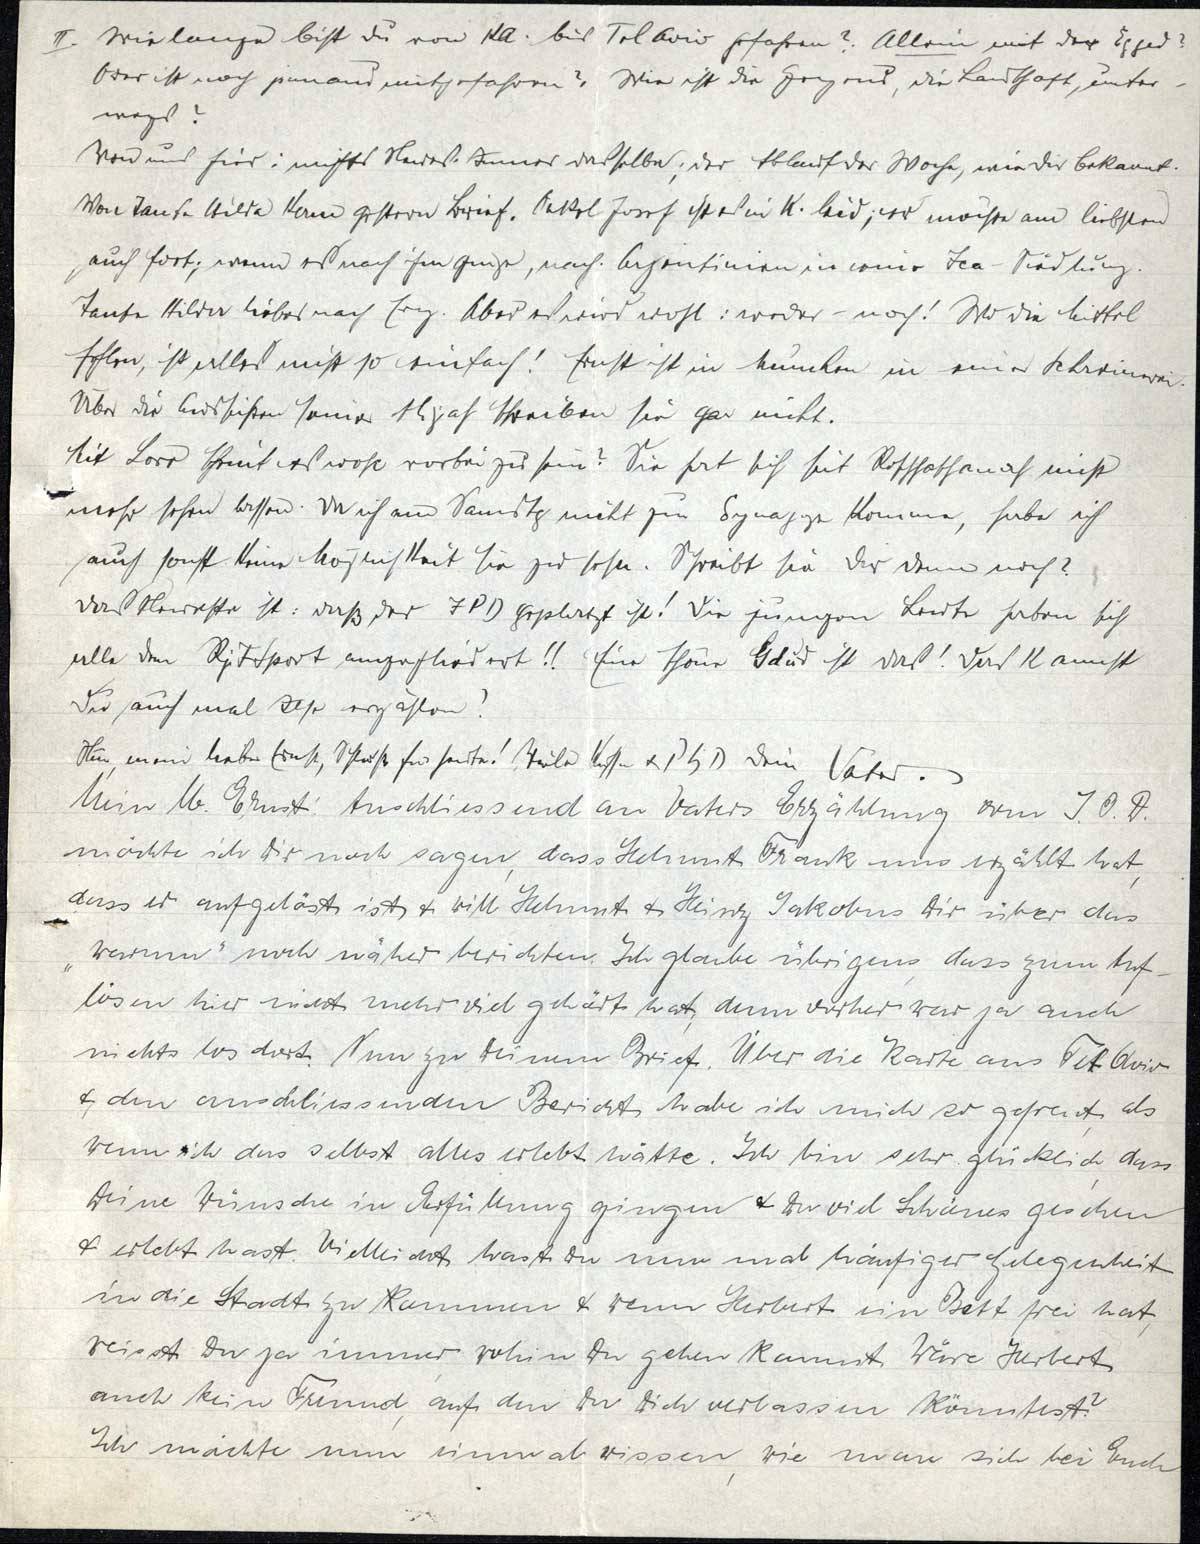 II. Wie lange bist du von KA. bis Tel Aviv gefahren? Allein mit der Egged?
Oder ist noch jemand mitgefahren? Wie ist die Gegend, die Landschaft, unter-
wegs?
Von uns hier: nichts Neues. Immer dasselbe; der Ablauf der Woche, wie dir bekannt.
Von Tante Hilda kam gestern Brief. Onkel Josef ist es in K. leid; er möchte am liebsten
auch fort; wenn es nach ihm ginge, nach Argentinien in eine Ica-Siedlung.
Tante Hilda lieber nach Erez. Aber es wird wohl: weder – noch! Wo die Mittel
fehlen, ist alles nicht so einfach! Ernst ist in München in einer Schreinerei.
Über die Aussichten seiner Alijah schreiben sie gar nicht.
Mit Lore scheint es wohl vorbei zu sein? Sie hat sich seit Roschhaschanah nicht
mehr sehen lassen. Da ich am Samstg nicht zur Synagoge komme, habe ich
auch sonst keine Möglichkeit sie zu sehen. Schreibt sie Dir denn noch?
Das Neueste ist: daß der JPD geplatzt ist! Die jungen Leute haben sich
alle dem RjFSport angegliedert!! Eine schöne Gdud ist das! Das kannst
Du auch mal erzählen!
Nun, mein lieber Ernst, Schluß für heute! Viele Küsse Dein Vater.
Mein lb. Ernst! Anschliessend an Vaters Erzählung vom J.P.D.
möchte ich Dir noch sagen, dass Helmut Frank uns erzählt hat,
dass er aufgelöst ist & will Helmut & Heinz Jakobus Dir über das
„warum" noch näher berichten. Ich glaube übrigens, dass zum Auf-
lösen hier nicht mehr viel gehört hat, denn vorher war ja auch
nichts los dort. Nun zu Deinem Brief. Über die Karte aus Tel Aviv
& den anschliessenden Bericht habe ich mich so gefreut, als
wenn ich das selbst alles erlebt hätte. Ich bin sehr glücklich, dass
Deine Wünsche in Erfüllung gingen & Du viel Schönes gesehen
& erlebt hast. Vielleicht hast Du nun mal häufiger Gelegenheit
in die Stadt zu kommen & wenn Herbert ein Bett frei hat,
weisst Du ja immer, wohin Du gehen kannst. Wäre Herbert
auch kein Freund, auf den Du Dich verlassen könntest?
Ich möchte nun einmal wissen, wie man sich bei Euch